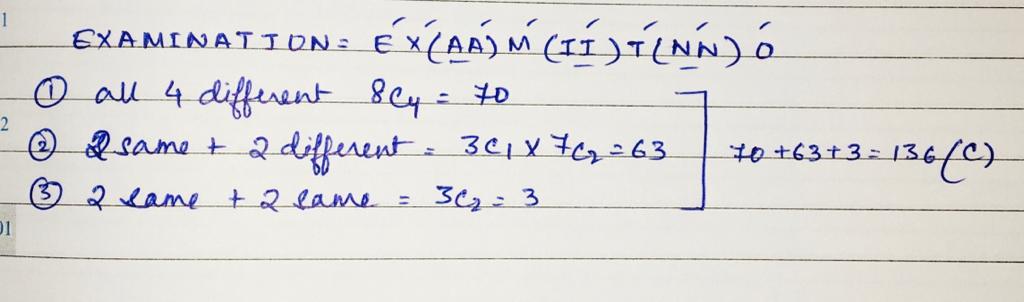 1
EXAMINATION = EX(AA)M(II)T(NN)O
① all 4 different 8C4 = 70
2
② 2 same + 2 different = 3C1 X 7C2 = 63
70+63+3 = 136 (C)
③ 2 same + 2 same = 3C2 = 3
01